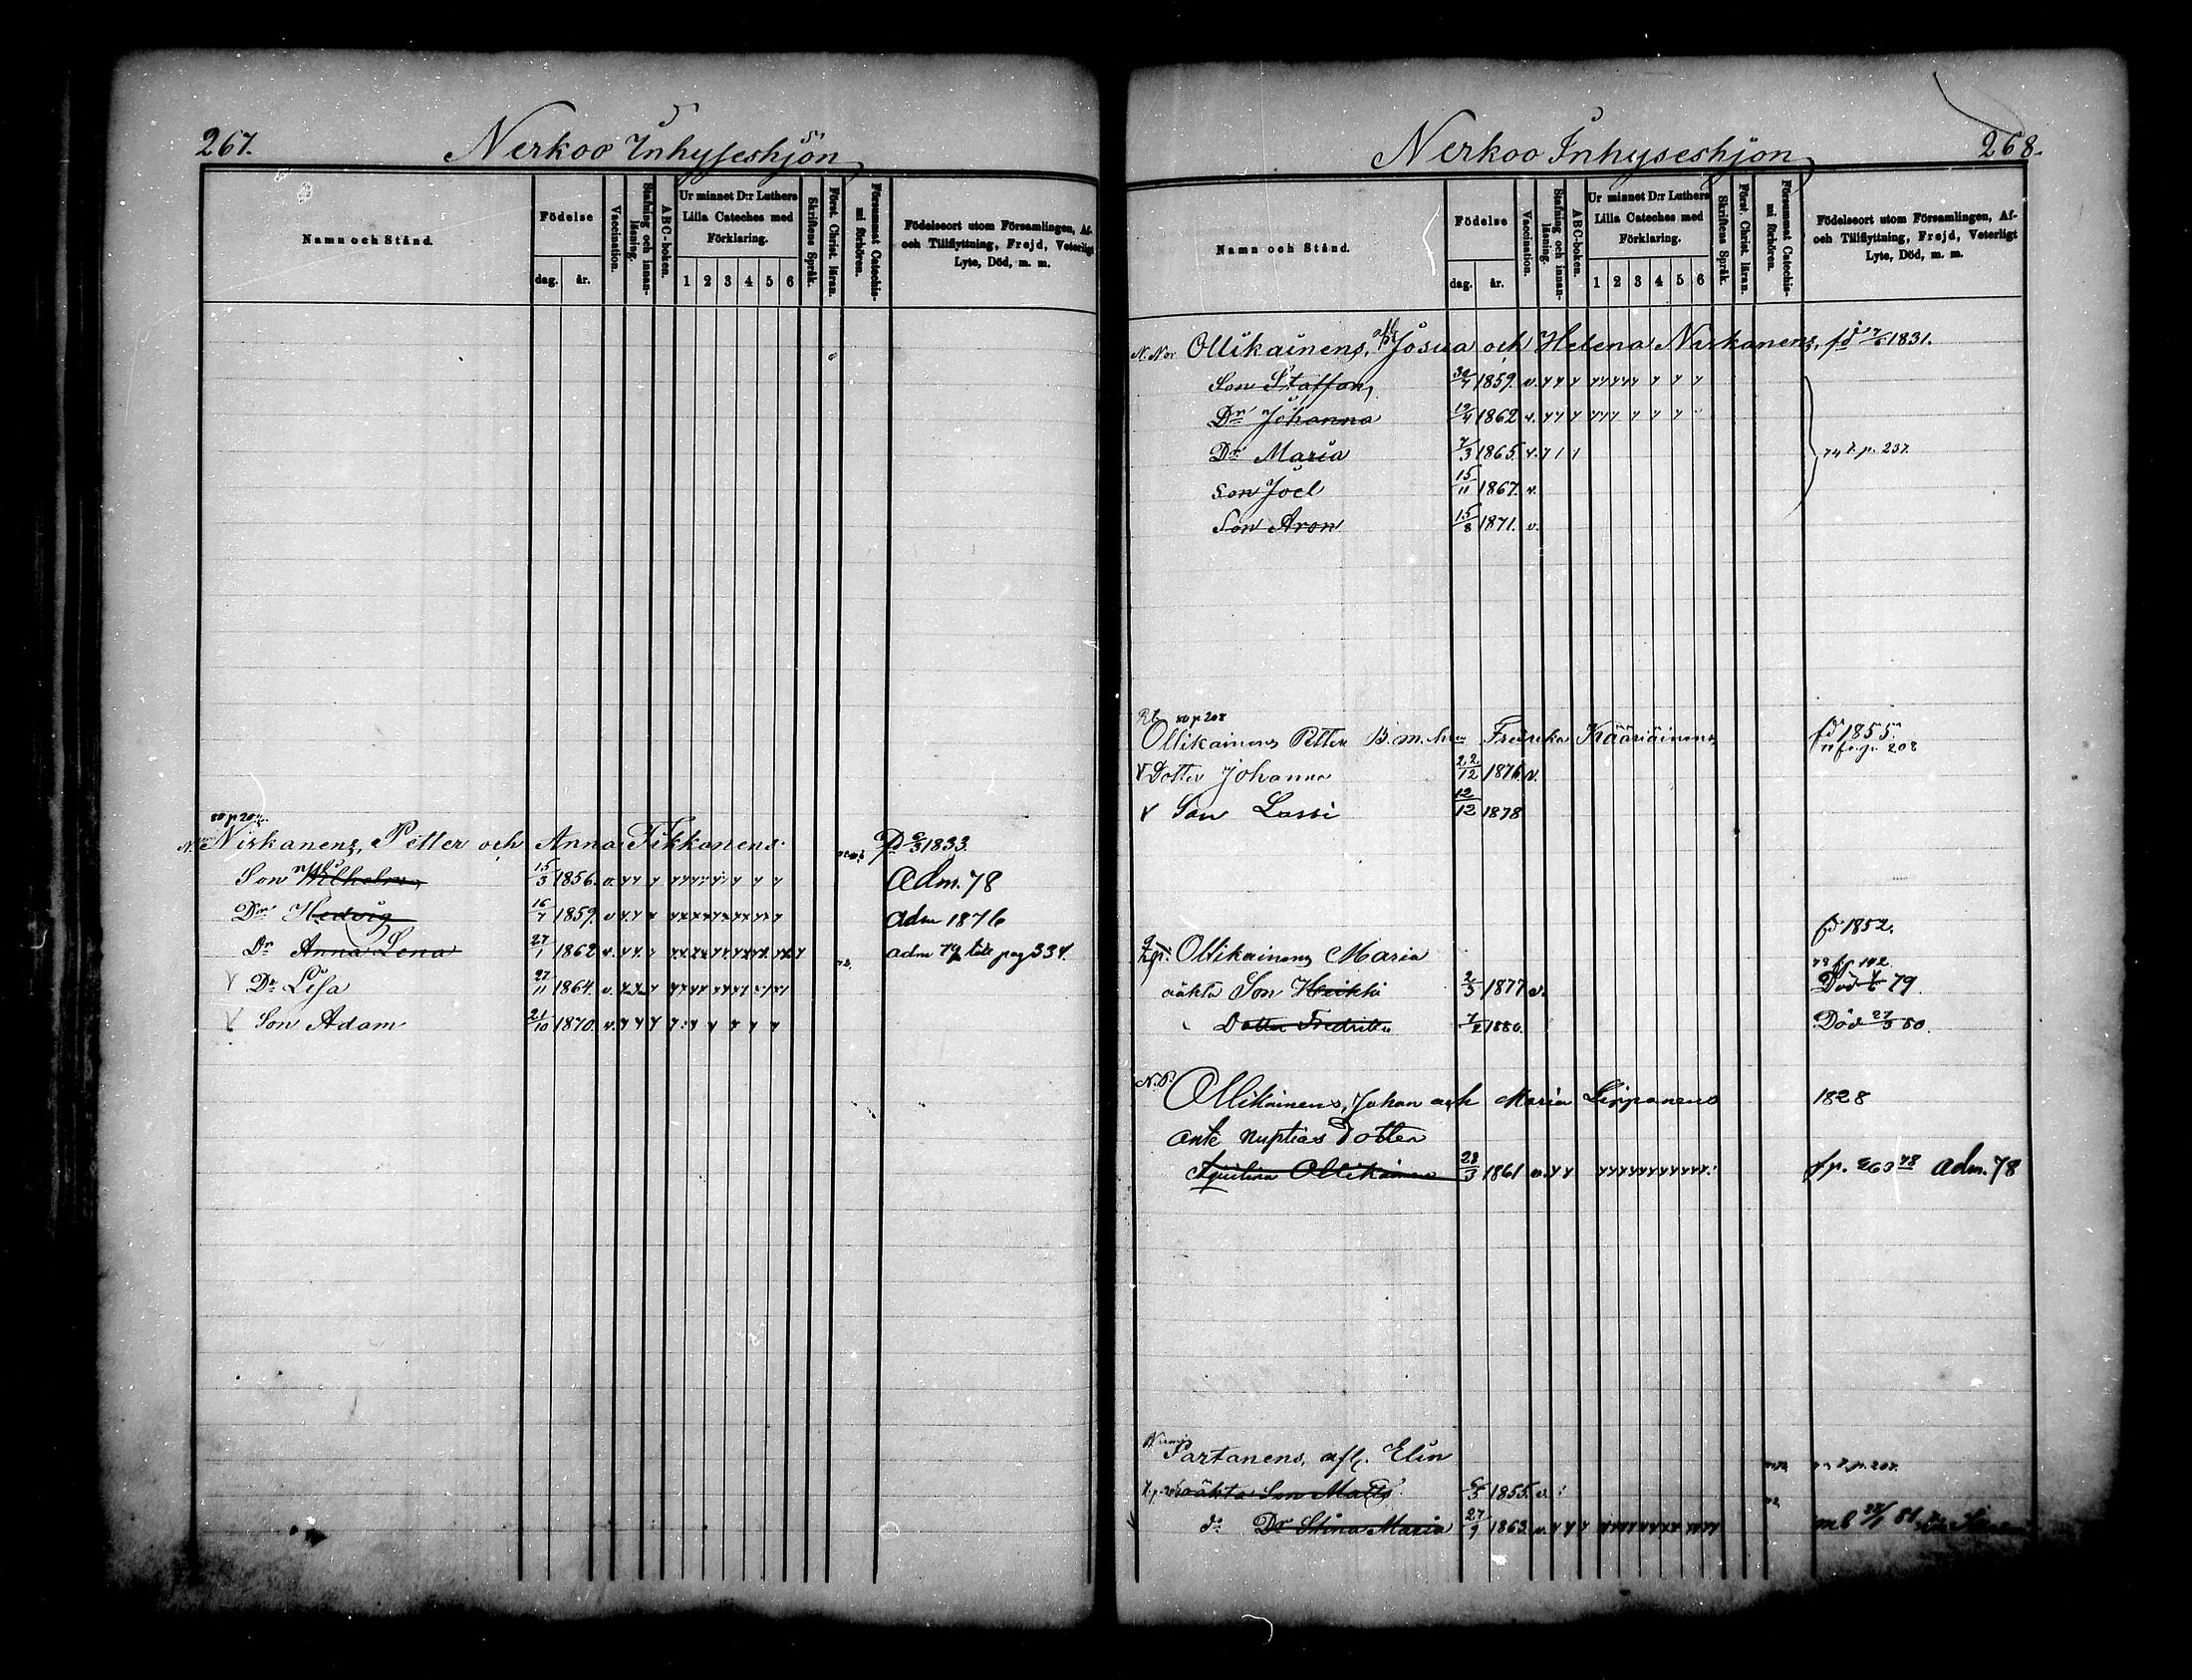 267.
Nerkoo Inhyseshjon
Namn och Stånd.
Födelse
dag.
år.
Vaccination.
Stafning och innan-
läsning.
ABC-boken.
Ur minnet D:r Luthers
Lilla Cateches med
Förklaring.
1 2 3 4 5 6
Skriftens Språk.
Först. Christ. läran.
Försummat Catechis-
mi förhören.
Födelseort utom Församlingen, Af-
och Tillflyttning, Frejd, Veterligt
Lyte, Död, m. m.
Nirkanens, Petter och Anna Tikkanens 1833.
Son Wilhelm 15/3 1856. v. Adm. 78
Dr Hedvig 16/7 1859. v. adm 1876
Dr Anna Lena 27/1 1862 v. adm 79 pag 334.
Dr Lisa 27/11 1864. v.
Son Adam 21/10 1870. v.
268.
Nerkoo Inhyseshjon
Namn och Stånd.
Födelse
dag.
år.
Vaccination.
Stafning och innan-
läsning.
ABC-boken.
Ur minnet D:r Luthers
Lilla Cateches med
Förklaring.
1 2 3 4 5 6
Skriftens Språk.
Först. Christ. läran.
Försummat Catechis-
mi förhören.
Födelseort utom Församlingen, Af-
och Tillflyttning, Frejd, Veterligt
Lyte, Död, m. m.
Ollikainens, Josua och Helena Nirkanens, fd 1831.
Son Staffan 30/7 1859. v.
Dr Johanna 19/4 1862 v.
Dr Maria 7/3 1865. v. p. 237.
Son Joel 15/11 1867. v.
Son Aron 15/8 1871. v.
p 208
Ollikainens Petter Fredrika Kääriäinens fd 1855.
208
Dotter Johanna 22/12 1876 v.
Son Lassi 12/12 1878
fd 1852.
Ollikainens Maria
oäkta Son Heikki 2/3 1877 v. Död 79.
Dotter Fredrika 7/2 1880. Död 27/3 80.
Ollikainens, Johan och Maria Lippanens 1828
ante nuptias Dotter
Ollikainen 28/3 1861 v. Adm. 78
Partanens, afl. Elin
oäkta Son Matts 1855. v.
do Dr Stina Maria 27/9 1863. v. 81